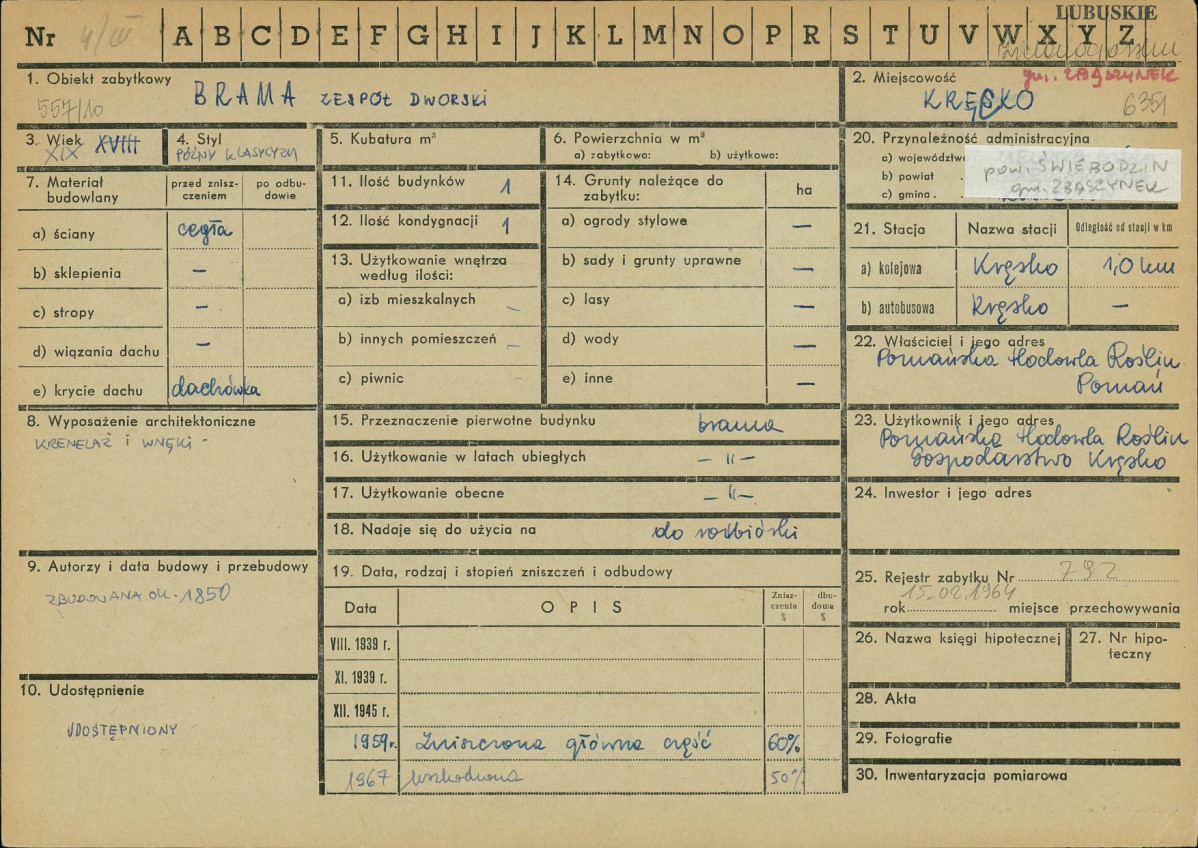 LUBUSKIE
Nr 4/III A B C D E F G H I J K L M N O P R S T U V W X Y Z
zielonogórskie
1. Obiekt zabytkowy
557/10
BRAMA ZESPÓŁ DWORSKI
2. Miejscowość
gm. ZBĄSZYNEK
KRĘSKO
6351
3. Wiek
XIX XVIII
4. Styl
PÓŹNY KLASYCYZM
5. Kubatura m³
6. Powierzchnia w m²
a) zabytkowa: b) użytkowa:
7. Materiał budowlany
przed znisz-
czeniem
po odbu-
dowie
a) ściany cegła
b) sklepienia –
c) stropy –
d) wiązania dachu –
e) krycie dachu dachówka
8. Wyposażenie architektoniczne
KRENELAŻ i WNĘKI -
9. Autorzy i data budowy i przebudowy
ZBUDOWANA OK. 1850
10. Udostępnienie
UDOSTĘPNIONY
11. Ilość budynków 1
12. Ilość kondygnacji 1
13. Użytkowanie wnętrza
według ilości:
a) izb mieszkalnych –
b) innych pomieszczeń –
c) piwnic –
14. Grunty należące do
zabytku:
ha
a) ogrody stylowe –
b) sady i grunty uprawne –
c) lasy –
d) wody –
e) inne –
15. Przeznaczenie pierwotne budynku brama
16. Użytkowanie w latach ubiegłych – " –
17. Użytkowanie obecne – " –
18. Nadaje się do użycia na do rozbiórki
19. Data, rodzaj i stopień zniszczeń i odbudowy
Data OPIS
Znisz-
czenia
%
dbu-
dowa
%
VIII. 1939 r.
XI. 1939 r.
XII. 1945 r.
1959r. Zniszczona główna część 60%
1967 uszkodzona 50%
20. Przynależność administracyjna
a) województw
b) powiat .
c) gmina . .
pow. ŚWIEBODZIN
gm. ZBĄSZYNEK
21. Stacja Nazwa stacji Odległość od stacji w km
a) kolejowa Kręsko 1,0 km
b) autobusowa Kręsko –
22. Właściciel i jego adres
Poznańska Hodowla Roślin
Poznań
23. Użytkownik i jego adres
Poznańska Hodowla Roślin
Gospodarstwo Kręsko
24. Inwestor i jego adres
25. Rejestr zabytku Nr 792
15.02.1964
rok miejsce przechowywania
26. Nazwa księgi hipotecznej
27. Nr hipo-
teczny
28. Akta
29. Fotografie
30. Inwentaryzacja pomiarowa